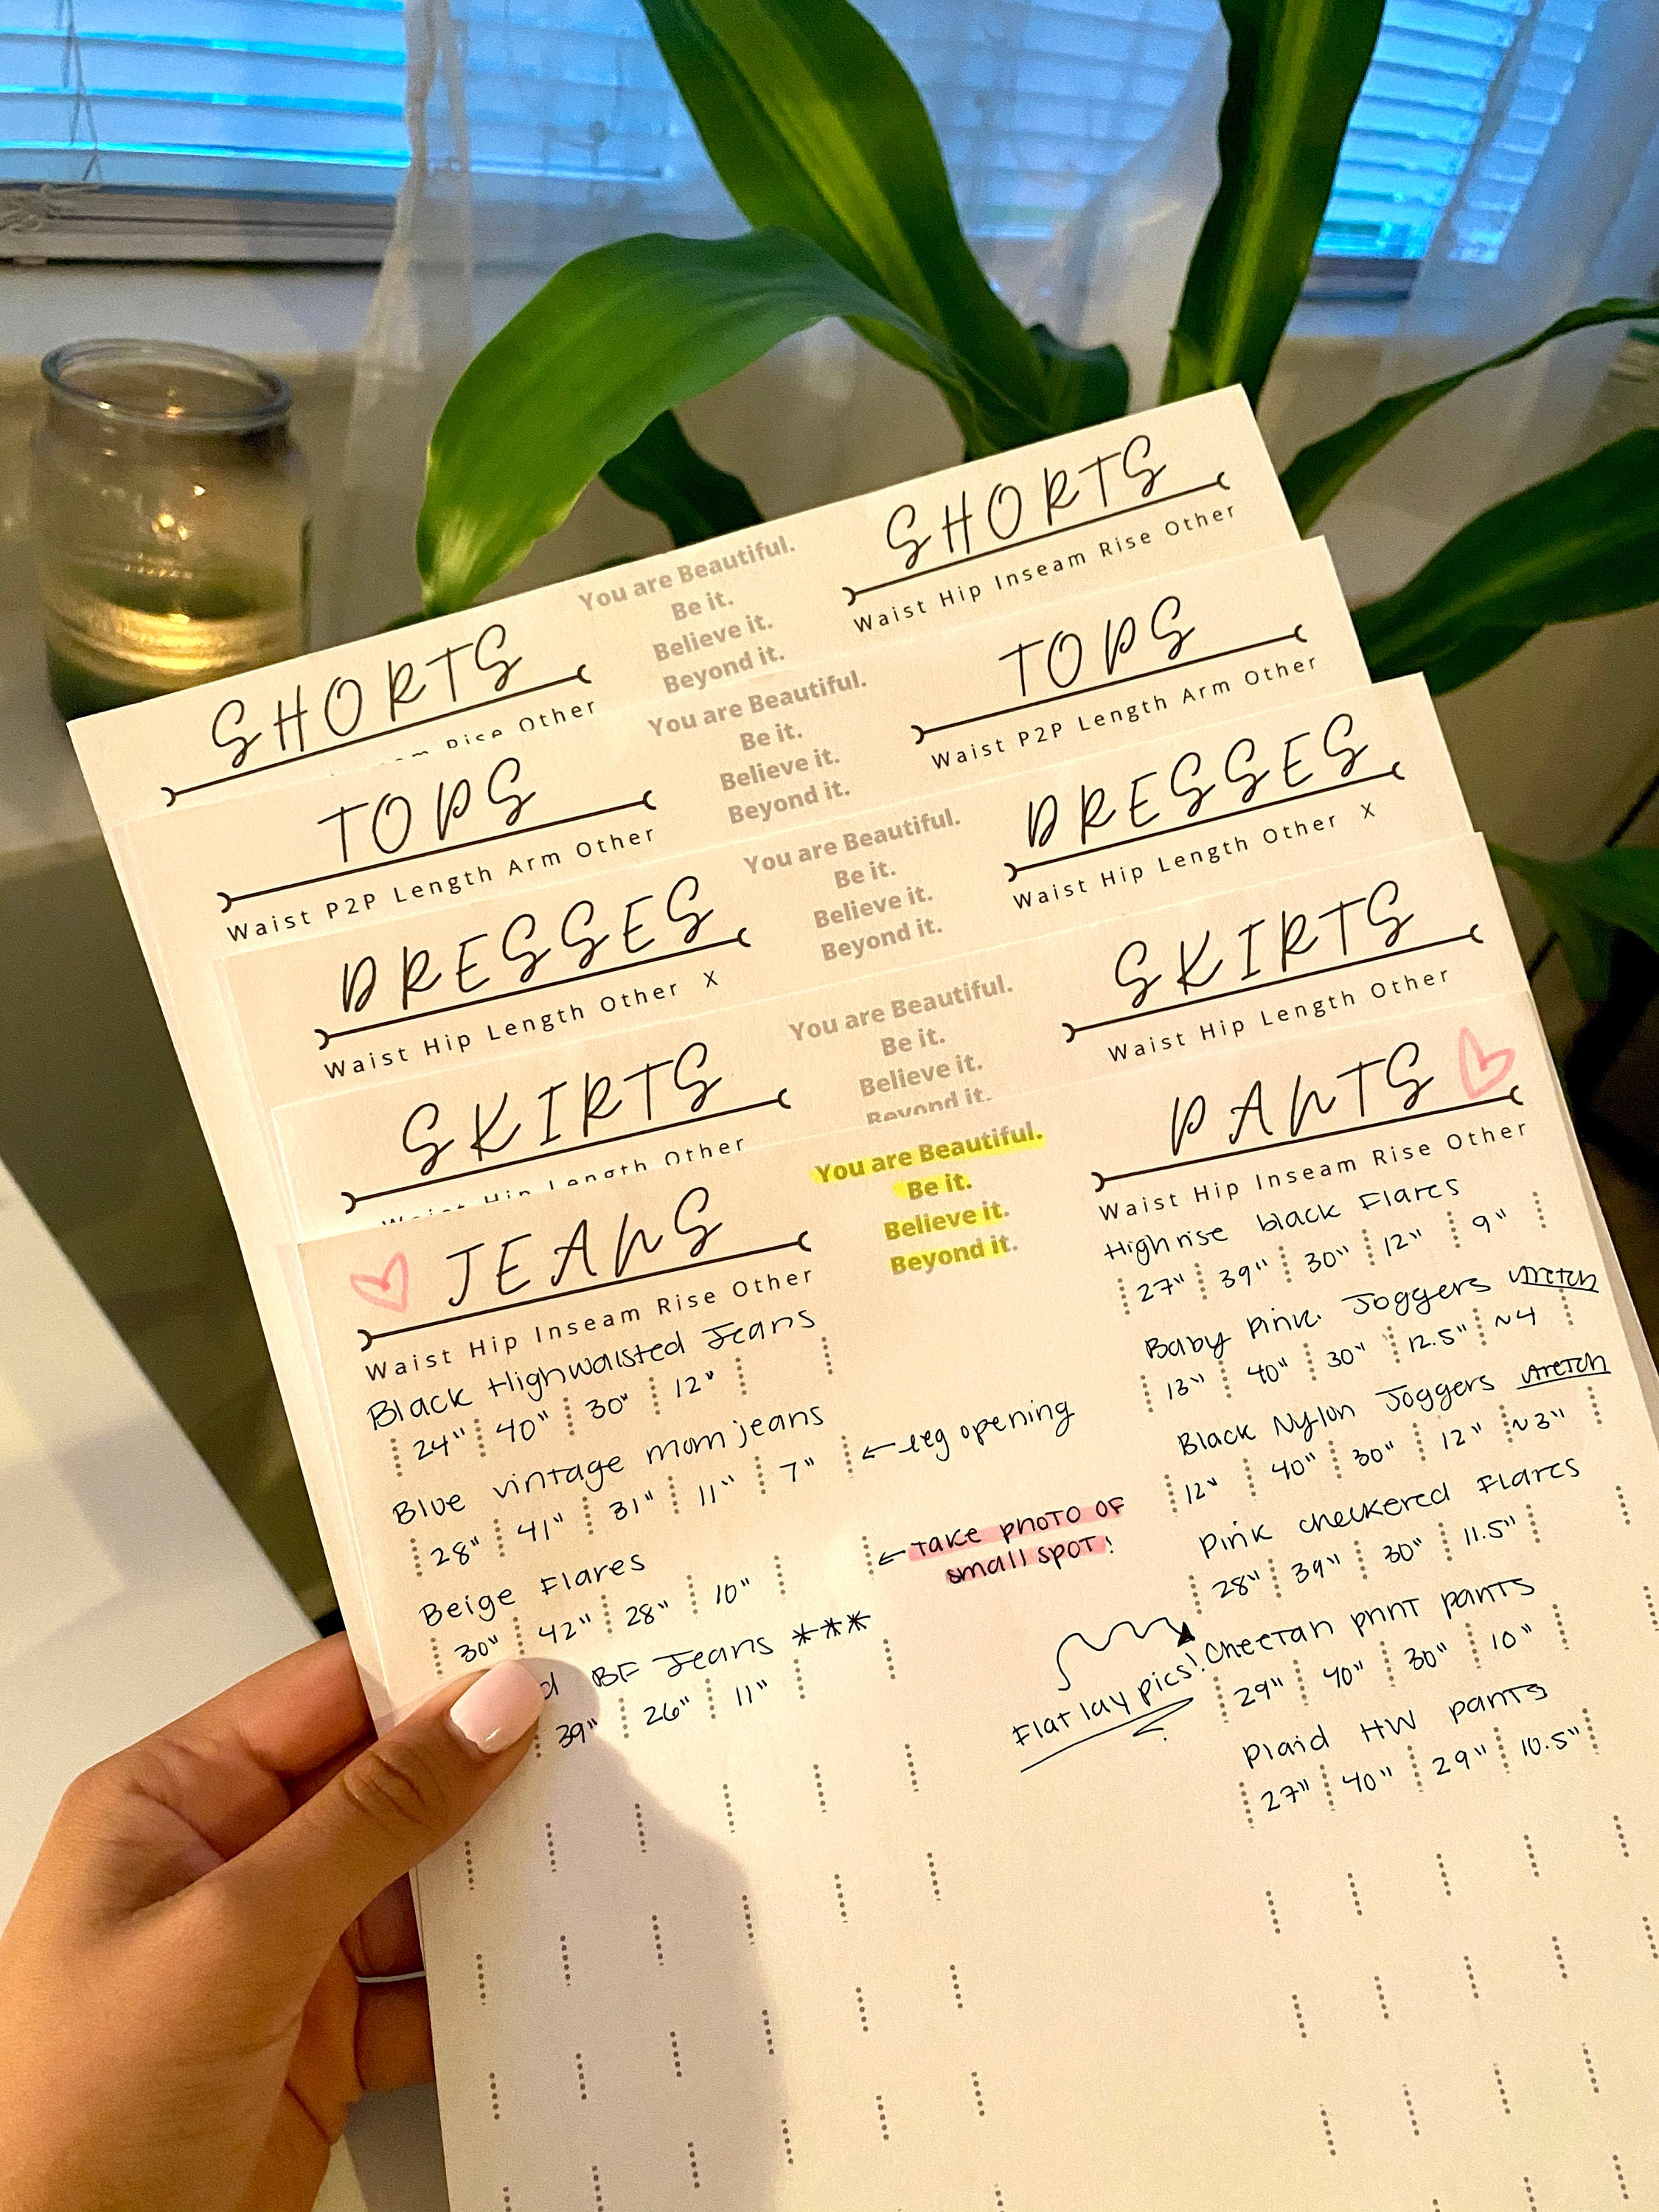 SHORTS
Waist Hip Inseam Rise Other
SHORTS
Rise Other
You are Beautiful.
Be it.
Believe it.
Beyond it.
TOPS
Waist P2P Length Arm Other
TOPS
Waist P2P Length Arm Other
You are Beautiful.
Be it.
Believe it.
Beyond it.
DRESSES
Waist Hip Length Other X
DRESSES
Waist Hip Length Other X
You are Beautiful.
Be it.
Believe it.
Beyond it.
SKIRTS
Waist Hip Length Other
SKIRTS
Waist Hip Length Other
You are Beautiful.
Be it.
Believe it.
Beyond it.
JEANS
Waist Hip Inseam Rise Other
Black Highwaisted Jeans
24" 40" 30" 12"
Blue vintage mom jeans
28" 41" 31" 11" 7" ← leg opening
Beige Flares
30" 42" 28" 10" ← take photo of
small spot!
BF Jeans ***
39" 26" 11"
You are Beautiful.
Be it.
Believe it.
Beyond it.
PANTS
Waist Hip Inseam Rise Other
High rise black Flares
27" 39" 30" 12" 9"
Baby Pink Joggers stretch
13" 40" 30" 12.5" ~4
Black Nylon Joggers stretch
12" 40" 30" 12" ~3"
Pink checkered Flares
28" 39" 30" 11.5"
Cheetah print pants
29" 40" 30" 10"
Flat lay pics!
Plaid HW pants
27" 40" 29" 10.5"